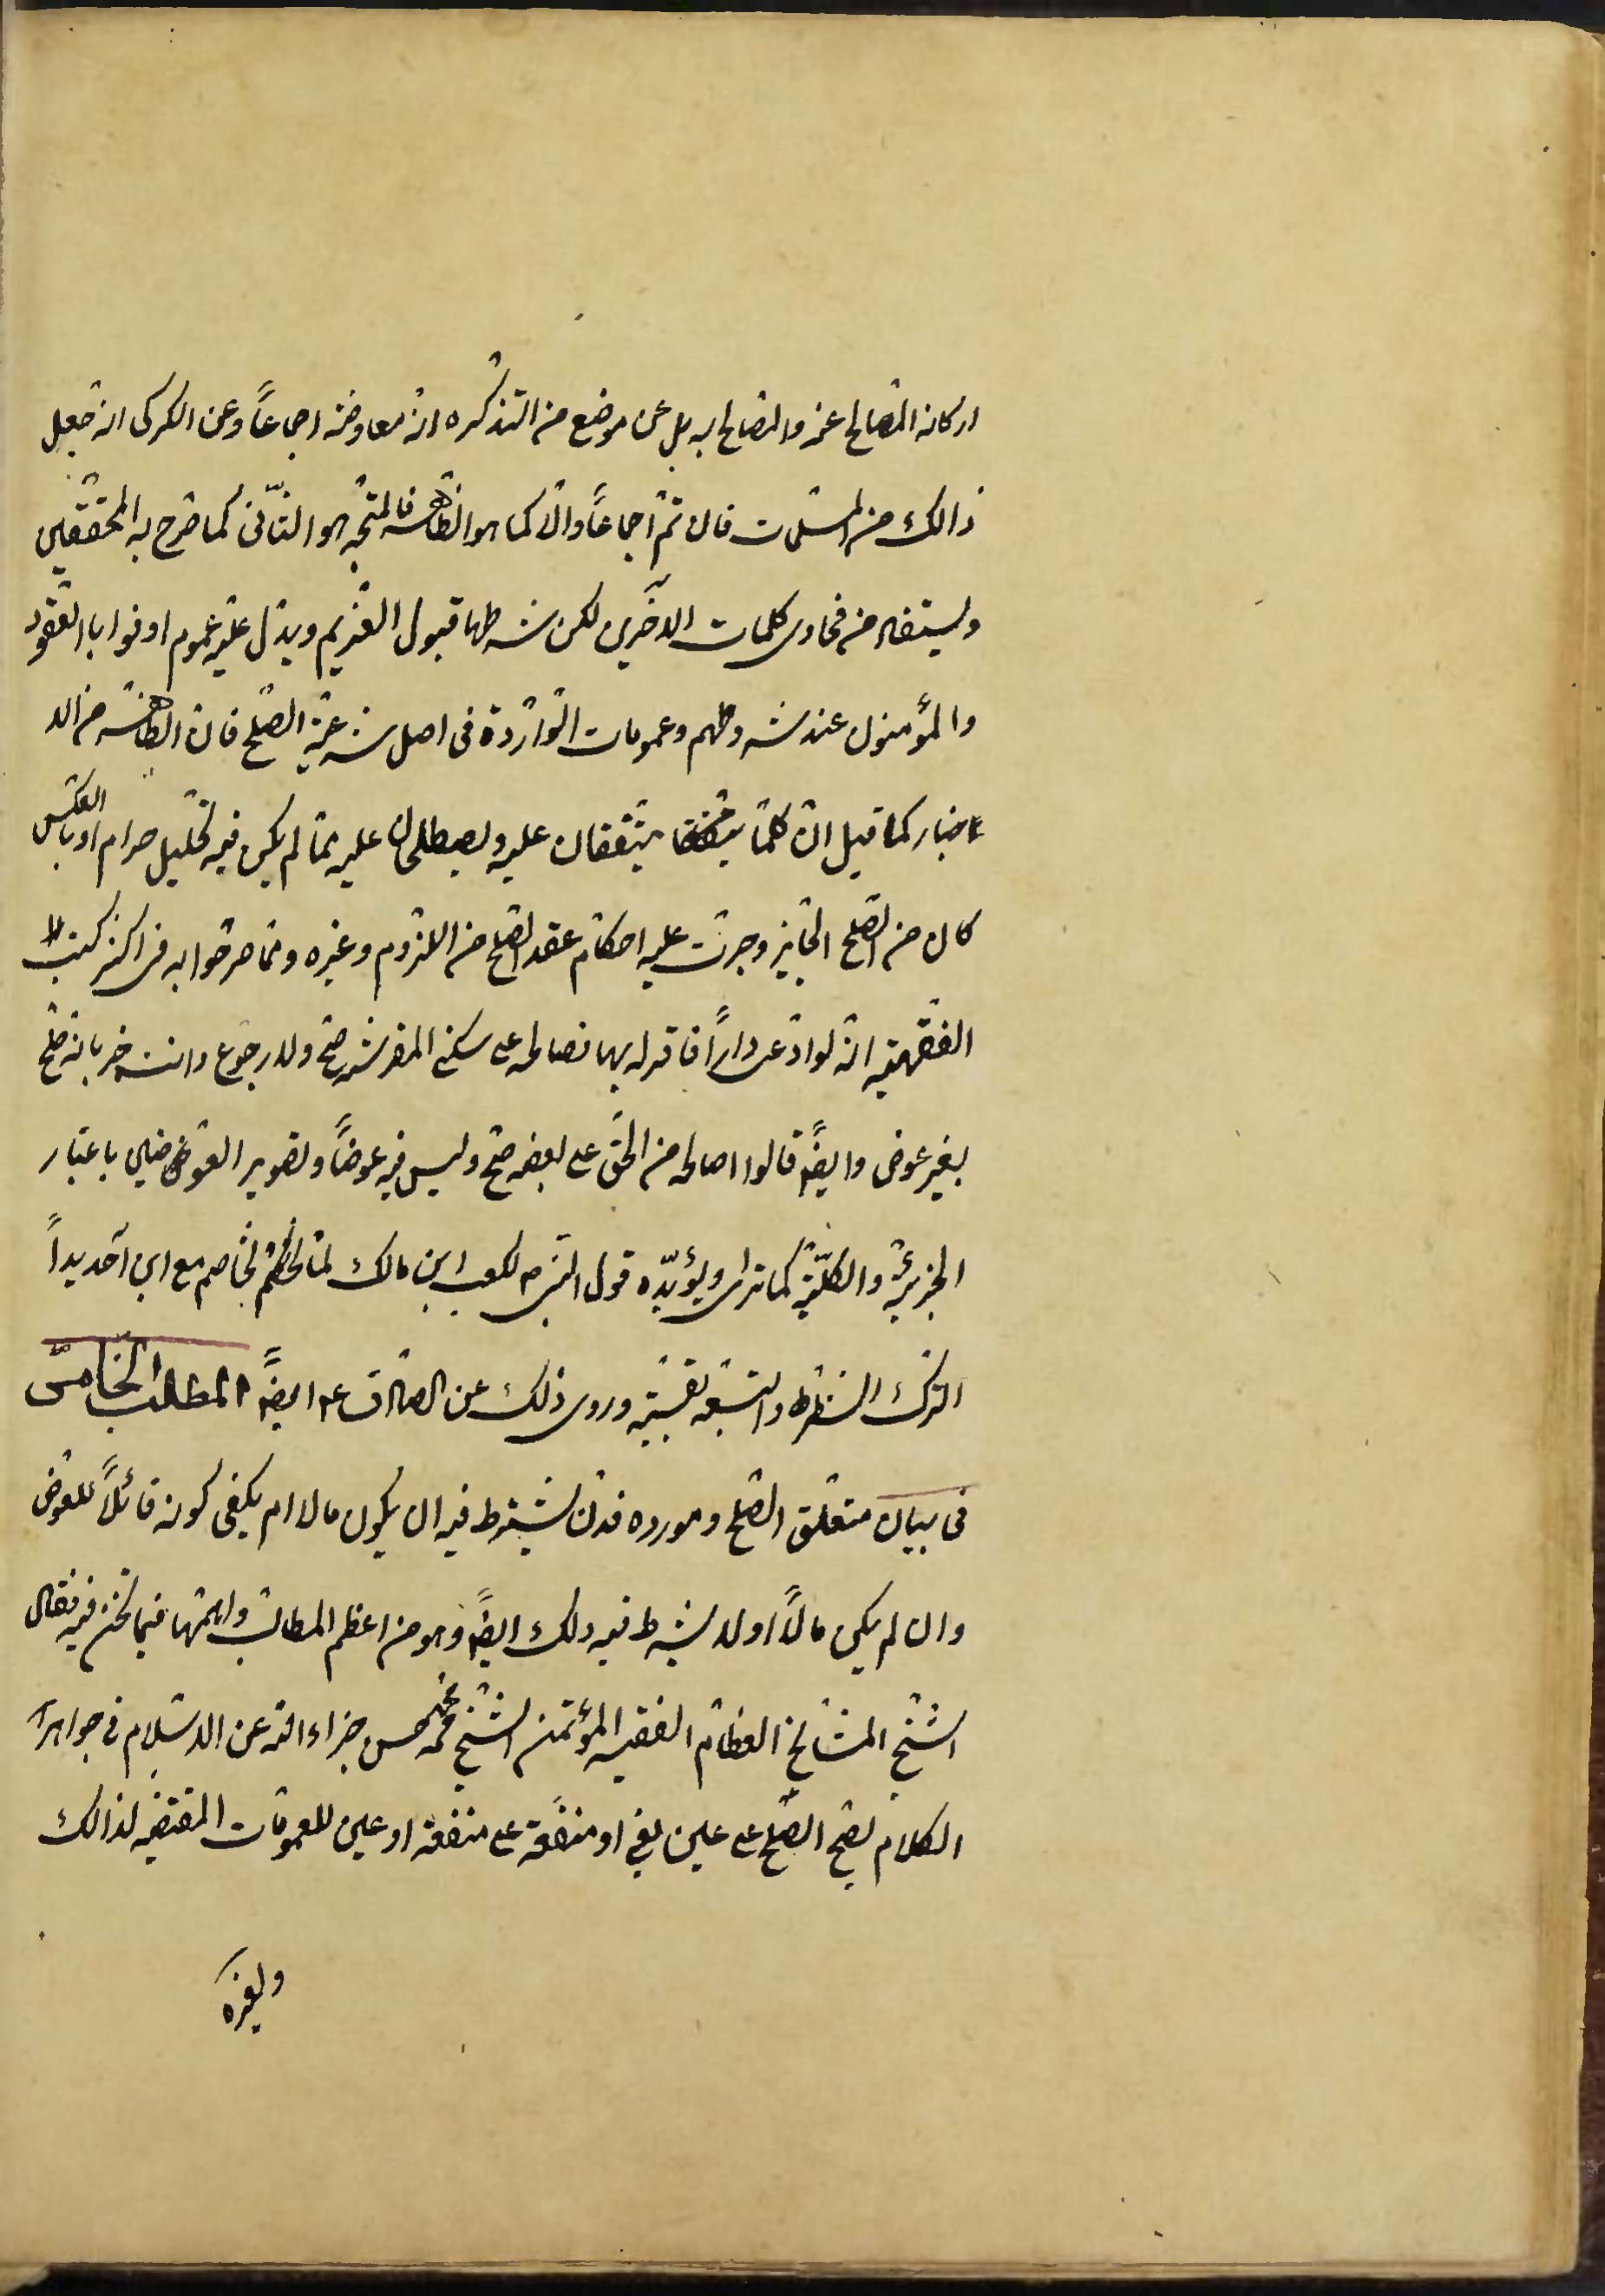 اركانه المصالح عنه والمصالح به بل عن موضع من التذكره انه معاوضة اجماعاً وعن الكركى انه جعل
ذالك من المسلّمات فان تمّ اجماعاً والّا كما هو الظاهر فالمتجه هو الثّانى كما صرّح به المحققين
ويستفاد من فحاوى كلمات الآخرين لكن شرطها قبول الغريم ويدّل عليه عموم اوفوا بالعقود
والمؤمنون عند شروطهم وعمومات الواردة فى اصل شرعيّة الصّلح فان الظاهر من الا
خبار كما قيل ان كلّما يتّفقان عليه ويصطلحان عليه ممّا لم يكن فيه تحليل حرام او بالعكس
كان من الصّلح الجايز وجرت عليه احكام عقد الصّلح من اللزوم وغيره وممّا صرّحوا به فى اكثر كتب
الفقهيّه انّه لو ادّعى داراً فاقرّ له بها فصالحه على سكنى المقر سنة صحّ ولا رجوع وانت خبير بانه صلح
بغير عوض وايضًا قالوا صالحه من الحقّ على بعضه صحّ وليس فيه عوضاً وتصوير العوضين باعتبار
الجزئيّة والكلّيّة كما ترى ويؤيّده قول النبى ص لكعب ابن مالك لمّا تخاصم مع ابى احديداً
اترك الشطر واتبعه ببقيّته وروى ذلك عن الصّادق ع ايضًا المطلب الخامس
فى بيان متعلّق الصّلح ومورده فهل يشترط فيه ان يكون مالا ام يكفى كونه قابلاً للعوض
وان لم يكن مالاً او لا يشترط فيه ذلك ايضًا وهو من اعظم المطالب واهمّها فيما نحن فيه فقال
الشيخ المشايخ العظام الفقيه المؤتمن الشيخ محمّد حسن جزاه الله عن الاسلام فى جواهر
الكلام يصّح الصّلح على عين بعين او منفعة على منفعة او عين للعمومات المقتضيه لذالك
ولغيره